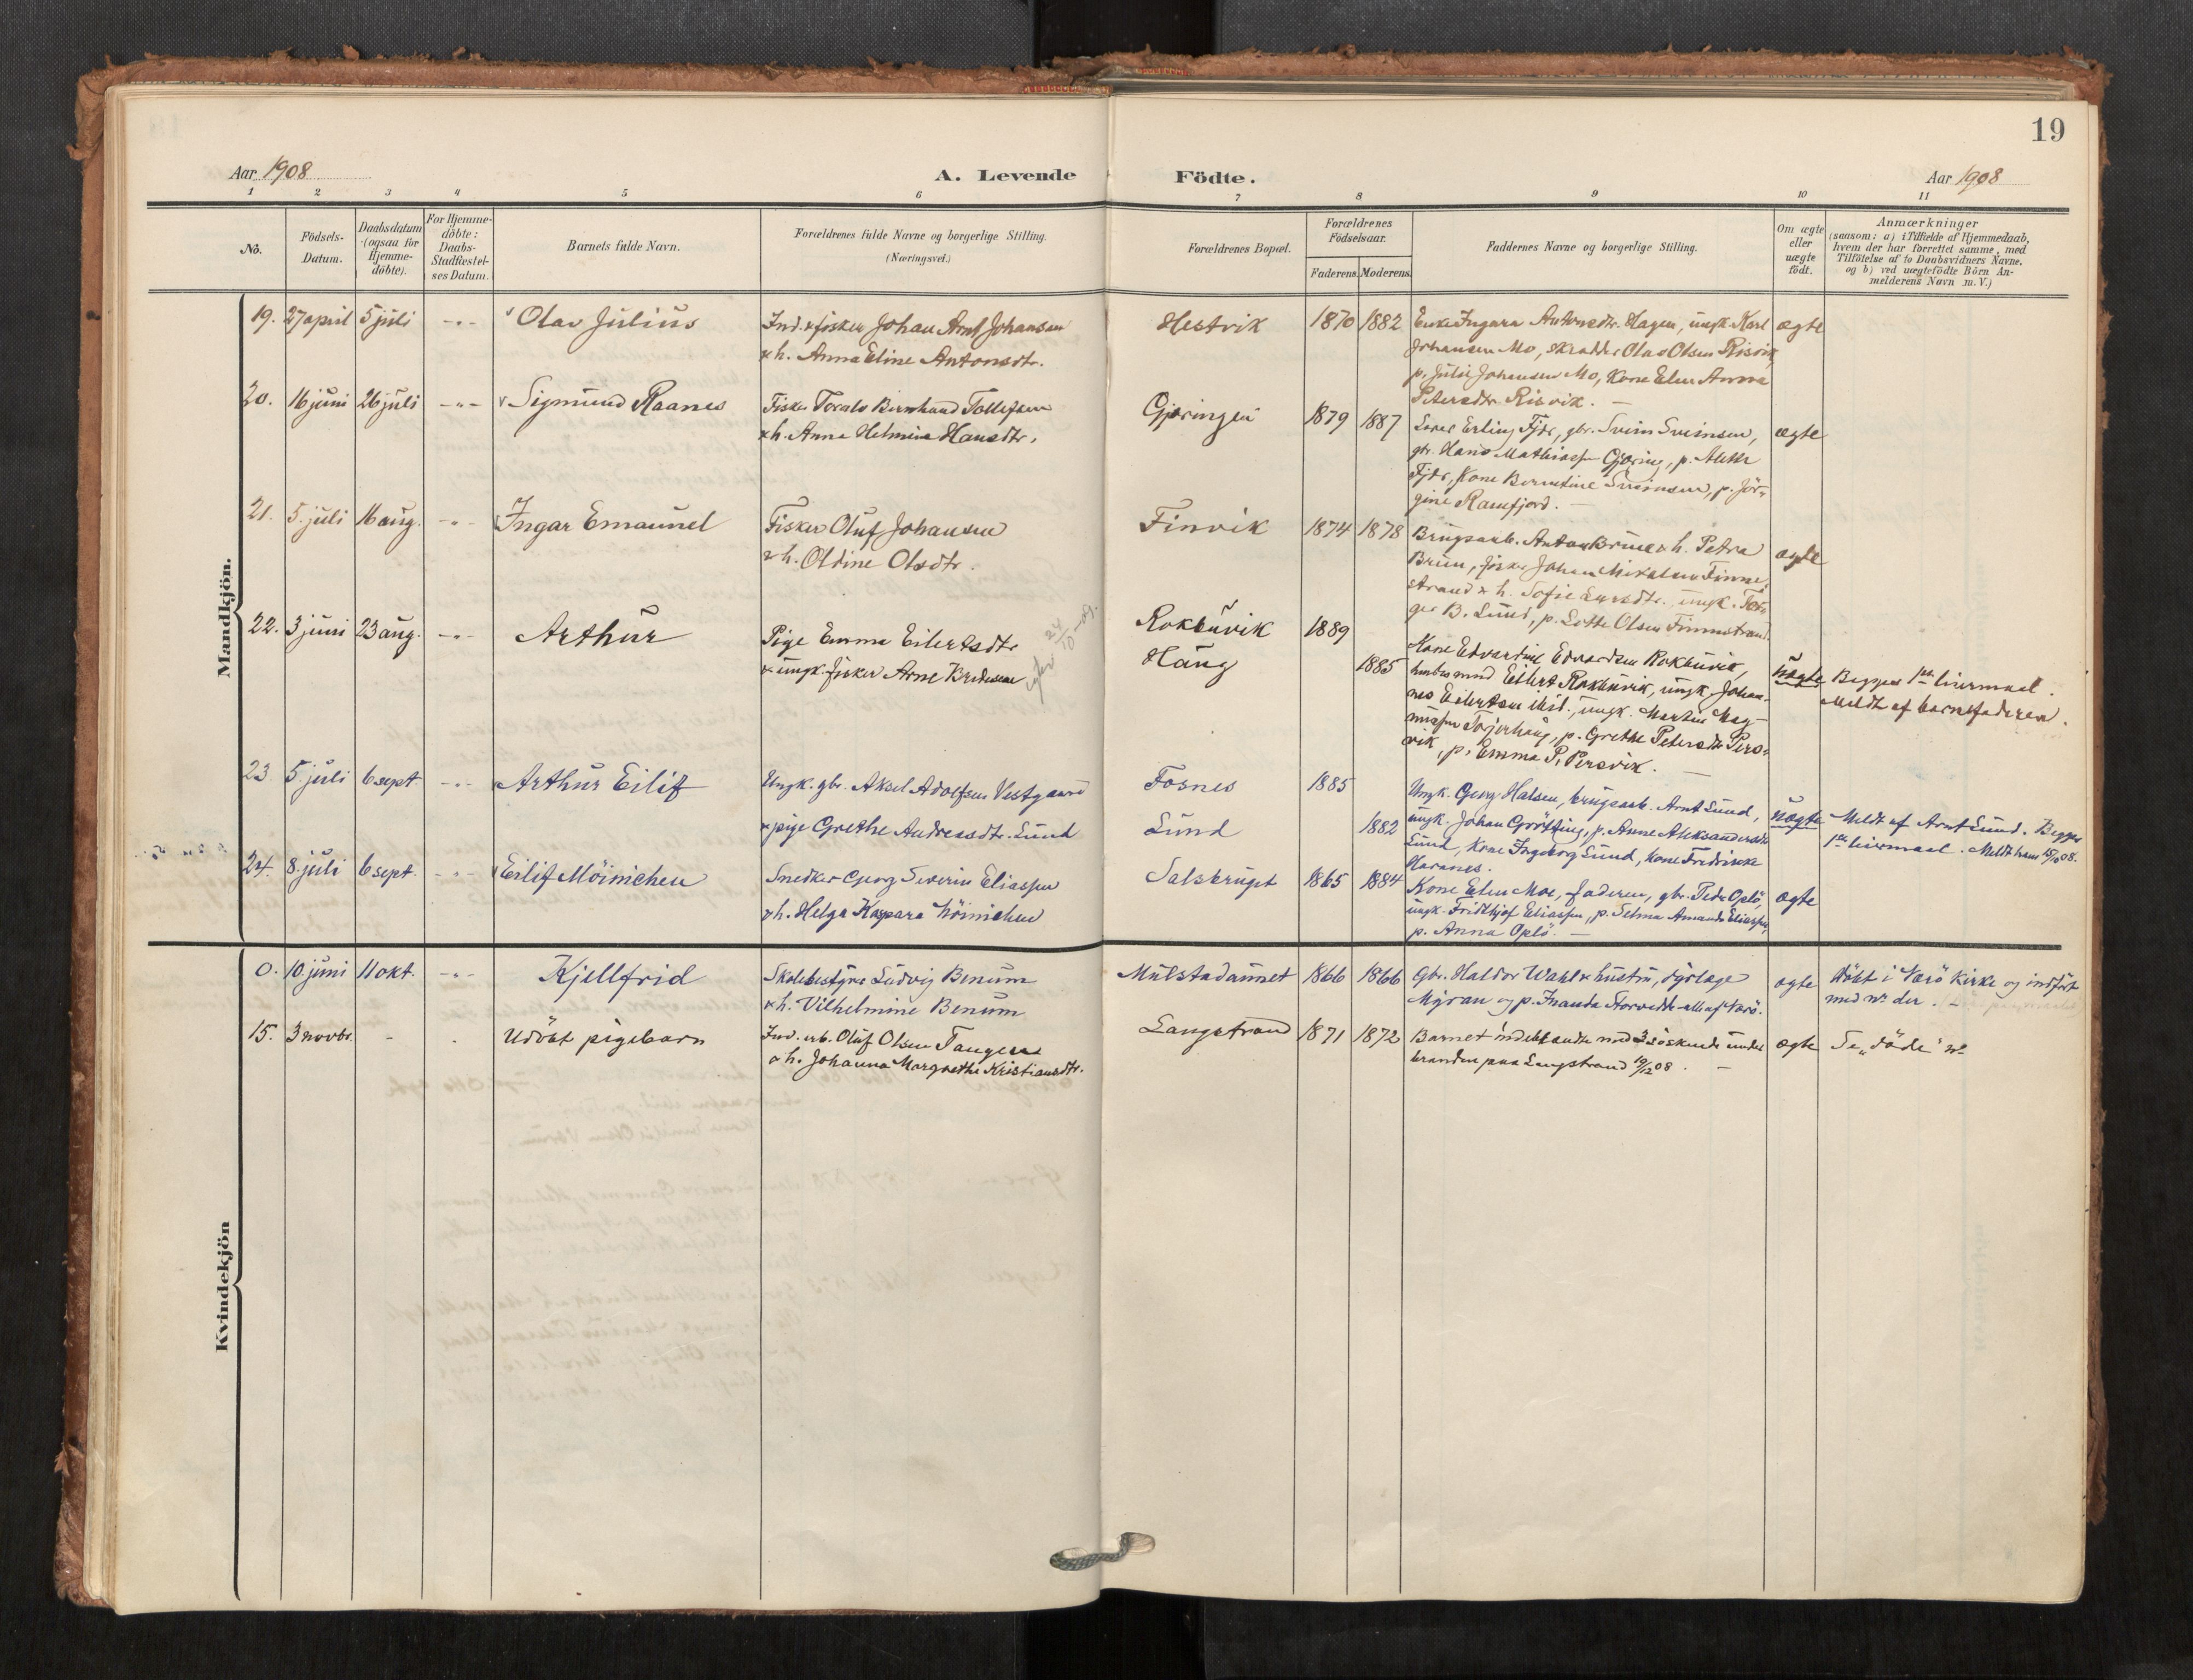 19
Aar 1908
A. Levende
Födte.
Aar 1908
1 2 3 4 5 6 7 8 9 10 11
No.
Födsels-
Datum.
Daabsdatum
(ogsaa for
Hjemme-
döbte).
For Hjemme-
döbte:
Daabs-
Stadfæstel-
ses Datum.
Barnets fulde Navn.
Forældrenes fulde Navne og borgerlige Stilling.
(Næringsvei.)
Forældrenes Bopæl.
Forældrenes
Födselsaar.
Faderens. Moderens.
Faddernes Navne og borgerlige Stilling.
Om ægte
eller
uægte
födt.
Anmærkninger
(saasom: a) i Tilfælde af Hjemmedaab,
hvem der har forrettet samme, med
Tilföielse af to Daabsvidners Navne,
og b) ved uægtefödte Börn An-
melderens Navn m. V.)
Mandkjön.
19. 27 april 5 juli -"- Olav Julius
Ind. & fisker Johan Arnt Johansen
& h. Anna Eline Antonsdtr.
Hestvik 1870 1882
Enke Ingara Antonsdtr. Hagen, ungk. Karl
Johansen Mo, skrædder Olav Olsen Risvik,
p. Julie Johansen Mo, Kone Elen Anna
Petersdtr. Risvik. —
ægte
20. 16 juni 26 juli -"- Sigmund Raanes
Fisker Toralv Bernhard Tollefsen
& h. Anna Helmine Hansdtr.
Gjæringen 1879 1887
Erling Fjær, gbr. Svein Sveinsen,
gbr. Hans Mathiassen Gjæring, p. Alethe
Fjær, Kone Berntine Sveinsen, p. Jör-
gine Ramfjord. —
ægte
21. 5. juli 16 aug. -"- Ingar Emanuel
Fisker Oluf Johansen
& h. Oldine Olsdtr.
Finvik 1874 1878
Brugsarb. Anton Bruun & h. Petra
Bruun, fisker Johan Mikalsen Finne-
strand & h. Sofie Larsdtr. ungk. Tor-
ger B. Lund, p. Lotte Olsen Finnestrand.
ægte
22. 3 juni 23 aug. -"- Arthur
Pige Emma Eilertsdtr.
& ungk. fisker Arne
24/10 - 09.
Rokbuvik 1889
Haug 1885
Kone Edvardine Edvardsen Rokbuvik,
husbesmnd Eilert Rokbuvik, ungk. Johan-
nes Eilertsen ibid., ungk. Martin Mag-
nussen Tojerhaug, p. Grethe Petersdtr. Pers-
vik, p. Emma P. Persvik. —
uægte
Begges 1ste leiermaal.
Meldt af barnefaderen.
23 5. juli 6 sept. -"- Arthur Eilif
Ungk. gbr. Aksel Adolfsen Vestgaard
& pige Grethe Andreasdtr. Lund
Fosnes 1885
Lund 1882
Ungk. Georg Halsen, brugsarb. Arnt Lund,
ungk. Johan Gröttting, p. Anne Aleksandersdtr.
Lund, Kone Ingeborg Lund, Kone Fredrikke
Haranes.
uægte
Meldt af Arnt Lund. Begges
1ste leiermaal. Meldt ham 15/10 08.
24. 8. juli 6 sept. -"- Eilif Möinichen
Snedker Georg Severin Eliassen
& h. Helga Kaspara Möinichen
Salsbruget 1865 1884
Kone Elen Moe, faderen, gbr. Peder Oplö,
ungk. Fridthjof Eliassen, p. Selma Amanda Eliassen,
p. Anna Oplö. —
ægte
Kvindekjön
0. 10. juni 11 okt. -"- Kjellfrid
Skolebestyrer Ludvig Benum
& h. Vilhelmine Benum
Mulstadaunet 1866 1866
Gbr. Haldor Wahl & hustru, dyrlæge
Myran og p. Inanda alle af Nærö.
ægte
Döbt i Nærö Kirke og indfört
med nr. der. —
15. 3 novbr. - - Udöbt pigebarn
Ind. arb. Oluf Olsen Tangen
& h. Johanna Margrethe Kristiansdtr.
Langstrand 1871 1872
Barnet indebrændte med 3 söskende under
branden paa Langstrand 19/12 08. —
ægte
Se „döde" nr.